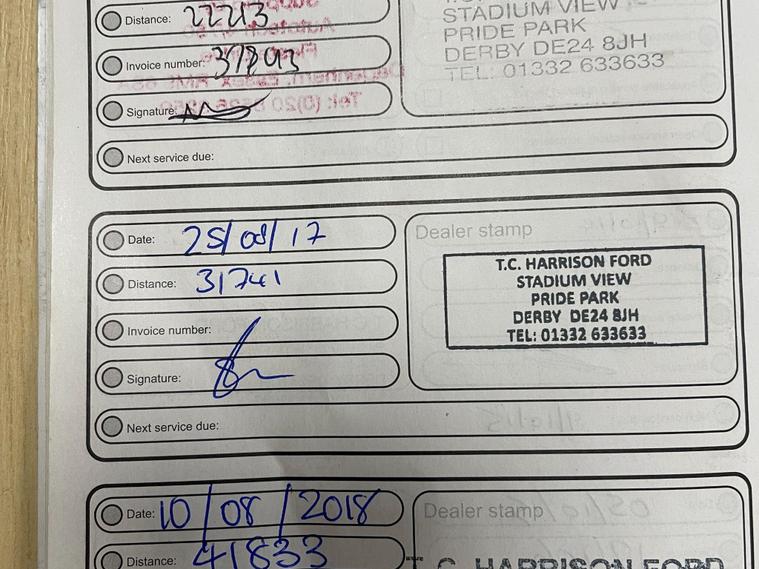 Distance: 22213
Invoice number: 37893
Signature:
Next service due:
STADIUM VIEW
PRIDE PARK
DERBY DE24 8JH
TEL: 01332 633633
Date: 25/08/17
Distance: 31741
Invoice number:
Signature:
Next service due:
Dealer stamp
T.C. HARRISON FORD
STADIUM VIEW
PRIDE PARK
DERBY DE24 8JH
TEL: 01332 633633
Date: 10/08/2018
Distance: 41833
Dealer stamp
T.C. HARRISON FORD